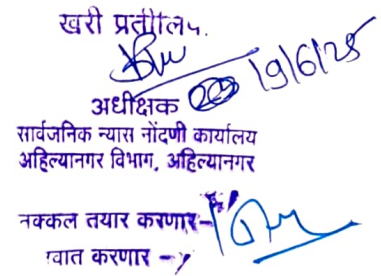 खरी प्रतीलिप.
अधीक्षक 19/6/25
सार्वजनिक न्यास नोंदणी कार्यालय
अहिल्यानगर विभाग, अहिल्यानगर
नक्कल तयार करणार-
वात करणार -